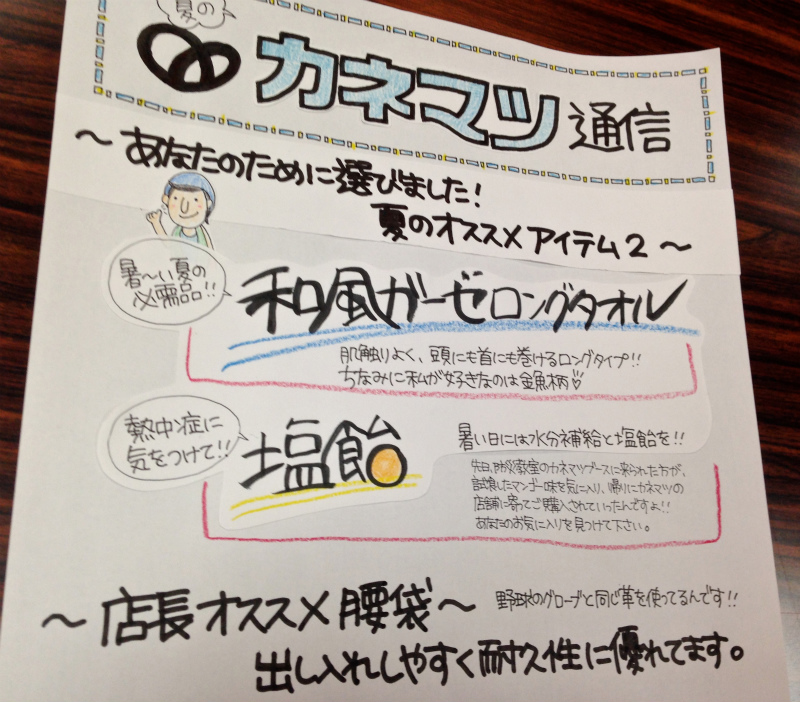 夏の
カネマツ通信
～あなたのために選びました！
夏のオススメアイテム2～
暑～い夏の
必需品!!
和風ガーゼロングタオル
肌触りよく、頭にも首にも巻けるロングタイプ!!
ちなみに私が好きなのは金魚柄♡
熱中症に
気をつけて!!
塩飴
暑い日には水分補給と塩飴を!!
先日、教室のカネマツブースに来られた方が、
試食したマンゴー味を気に入り、帰りにカネマツの
店舗に寄ってご購入されていったんですよ!!
あなたのお気に入りを見つけて下さい。
～店長オススメ腰袋～
野球のグローブと同じ革を使ってるんです!!
出し入れしやすく耐久性に優れてます。